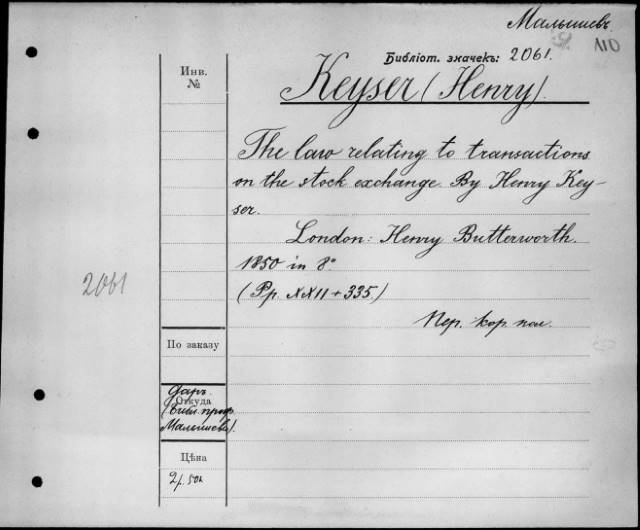 Малышевъ
110
Библіот. значекъ: 2061.
Инв.
№
Keyser (Henry).
The law relating to transactions
on the stock exchange. By Henry Key-
ser.
London: Henry Butterworth.
1850 in 8°
(Pp. XXII + 335.)
Пер. кор. пол.
2061
По заказу
Даръ
Откуда
(библ. проф.
Малышева).
Цѣна
2р. 50к